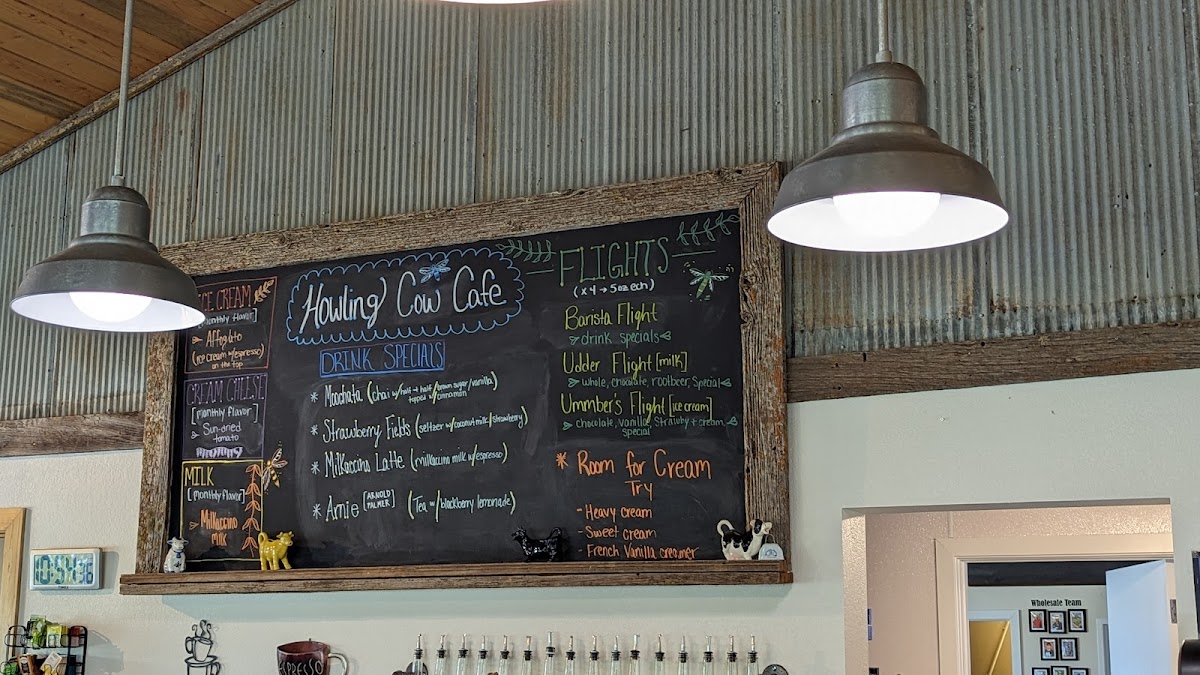 ICE CREAM
[monthly flavor]
Affogato
(ice cream w/espresso
on the top)
CREAM CHEESE
[monthly flavor]
Sun-dried
tomato
MILK
[monthly flavor]
Milkaccino
milk
Howling Cow Cafe
DRINK SPECIALS
* Moochata (chai w/half + half/brown sugar/vanilla)
topped w/cinnamon
* Strawberry Fields (seltzer w/coconut milk/strawberry)
* Milkaccino Latte (milkaccino milk w/espresso)
* Arnie [ARNOLD PALMER] (Tea w/blackberry lemonade)
FLIGHTS
(x 4 → 5oz ech)
Barista Flight
drink specials
Udder Flight [milk]
whole, chocolate, rootbeer, Special
Ummber's Flight [ice cream]
chocolate, vanilla, Strawby + cream,
special
* Room for Cream
Try
- Heavy cream
- Sweet cream
- French Vanilla creamer
ESPRESSO
Wholesale Team